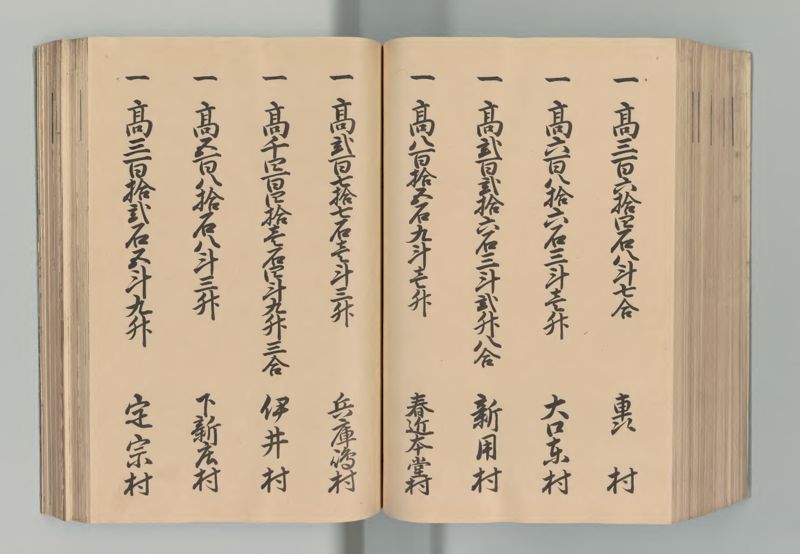 一 高三百六拾四石八斗七合 村
一 高六百八拾六石三斗壱升 大口東村
一 高弐百弐拾六石三斗弐升八合 新用村
一 高八百拾五石九斗壱升 春近本堂村
一 高弐百七拾七石壱斗三升 兵庫嶋村
一 高千四百四拾壱石四斗九升三合 伊井村
一 高五百八拾石八斗三升 下新庄村
一 高三百拾弐石五斗九升 定宗村